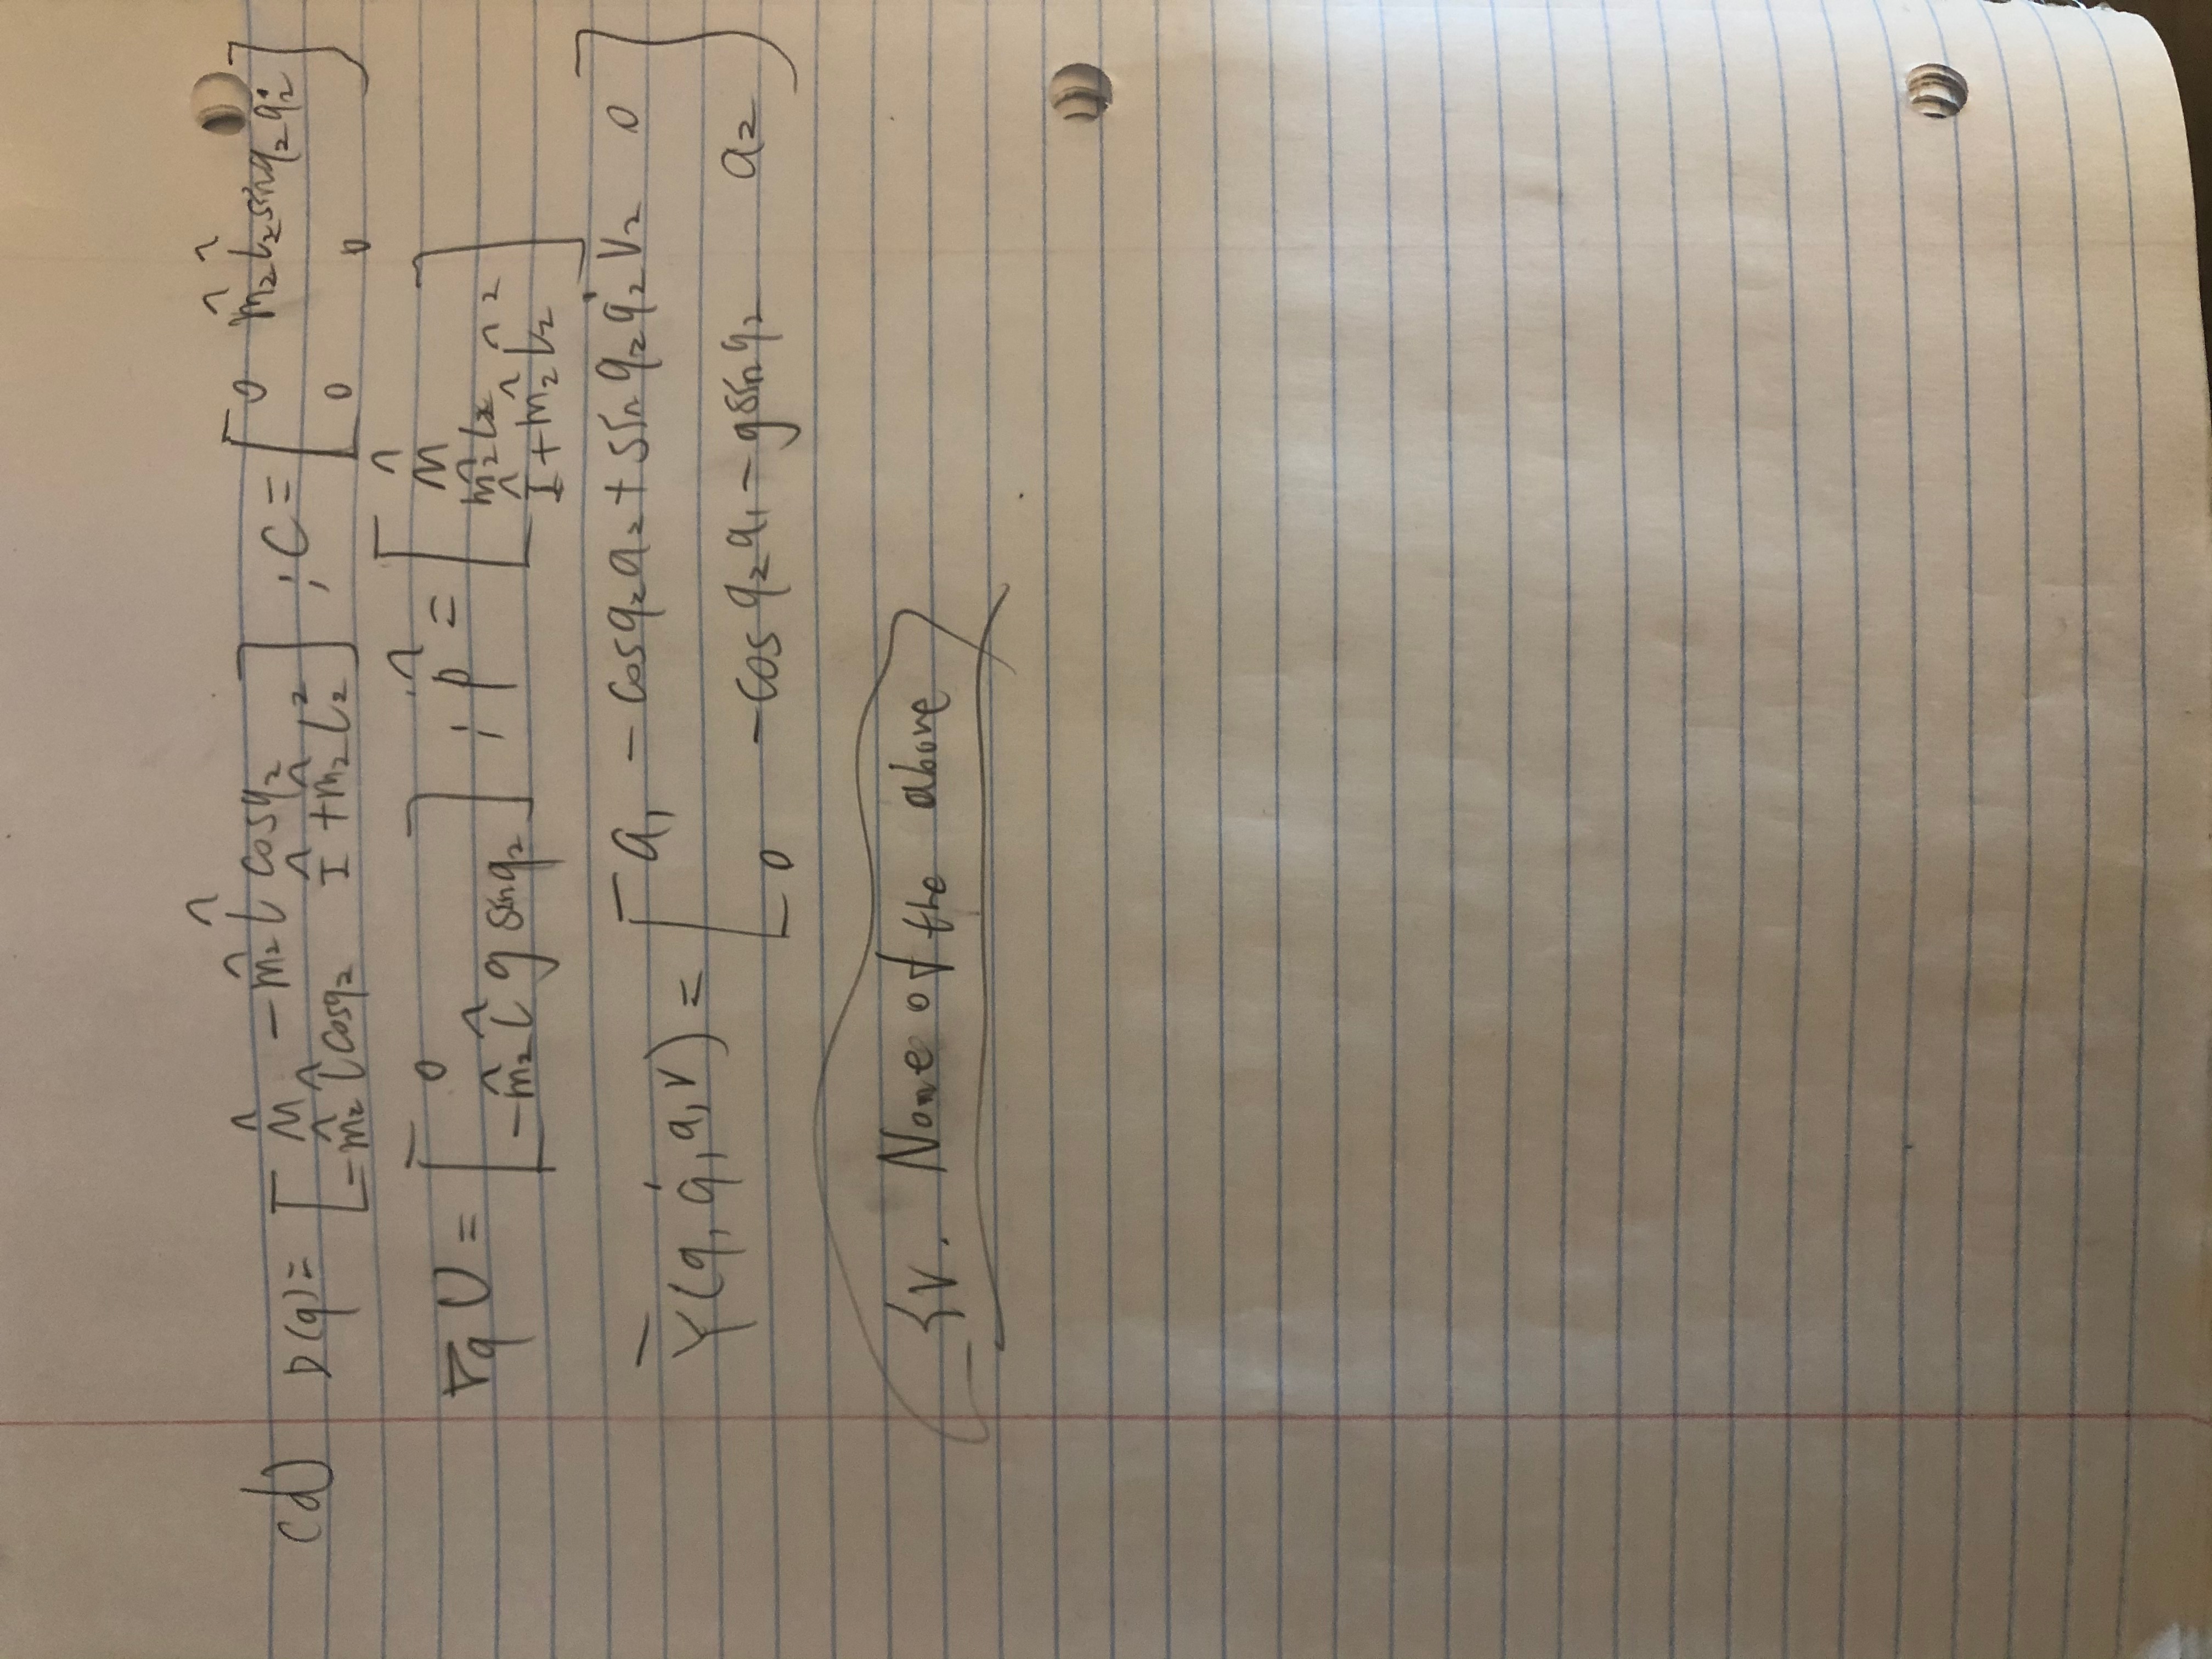 (d) D(q) = [ M̂ -m̂₂ l̂ cosq₂ ; -m̂₂ l̂ cosq₂ Î + m̂₂ l₂² ] ; C = [ 0 m̂₂ l̂₂ sinq₂ q̇₂ ; 0 0 ]
∇q U = [ 0 ; -m̂₂ l̂ g sinq₂ ] ; p̂ = [ M̂ ; m̂₂l₂ ; Î + m̂₂ l̂₂² ]
Y(q, q̇, a, v) = [ a₁ -cosq₂ a₂ + sin q₂ q̇₂ v₂ 0 ; 0 -cos q₂ a₁ - g sin q₂ a₂ ]
iv. None of the above